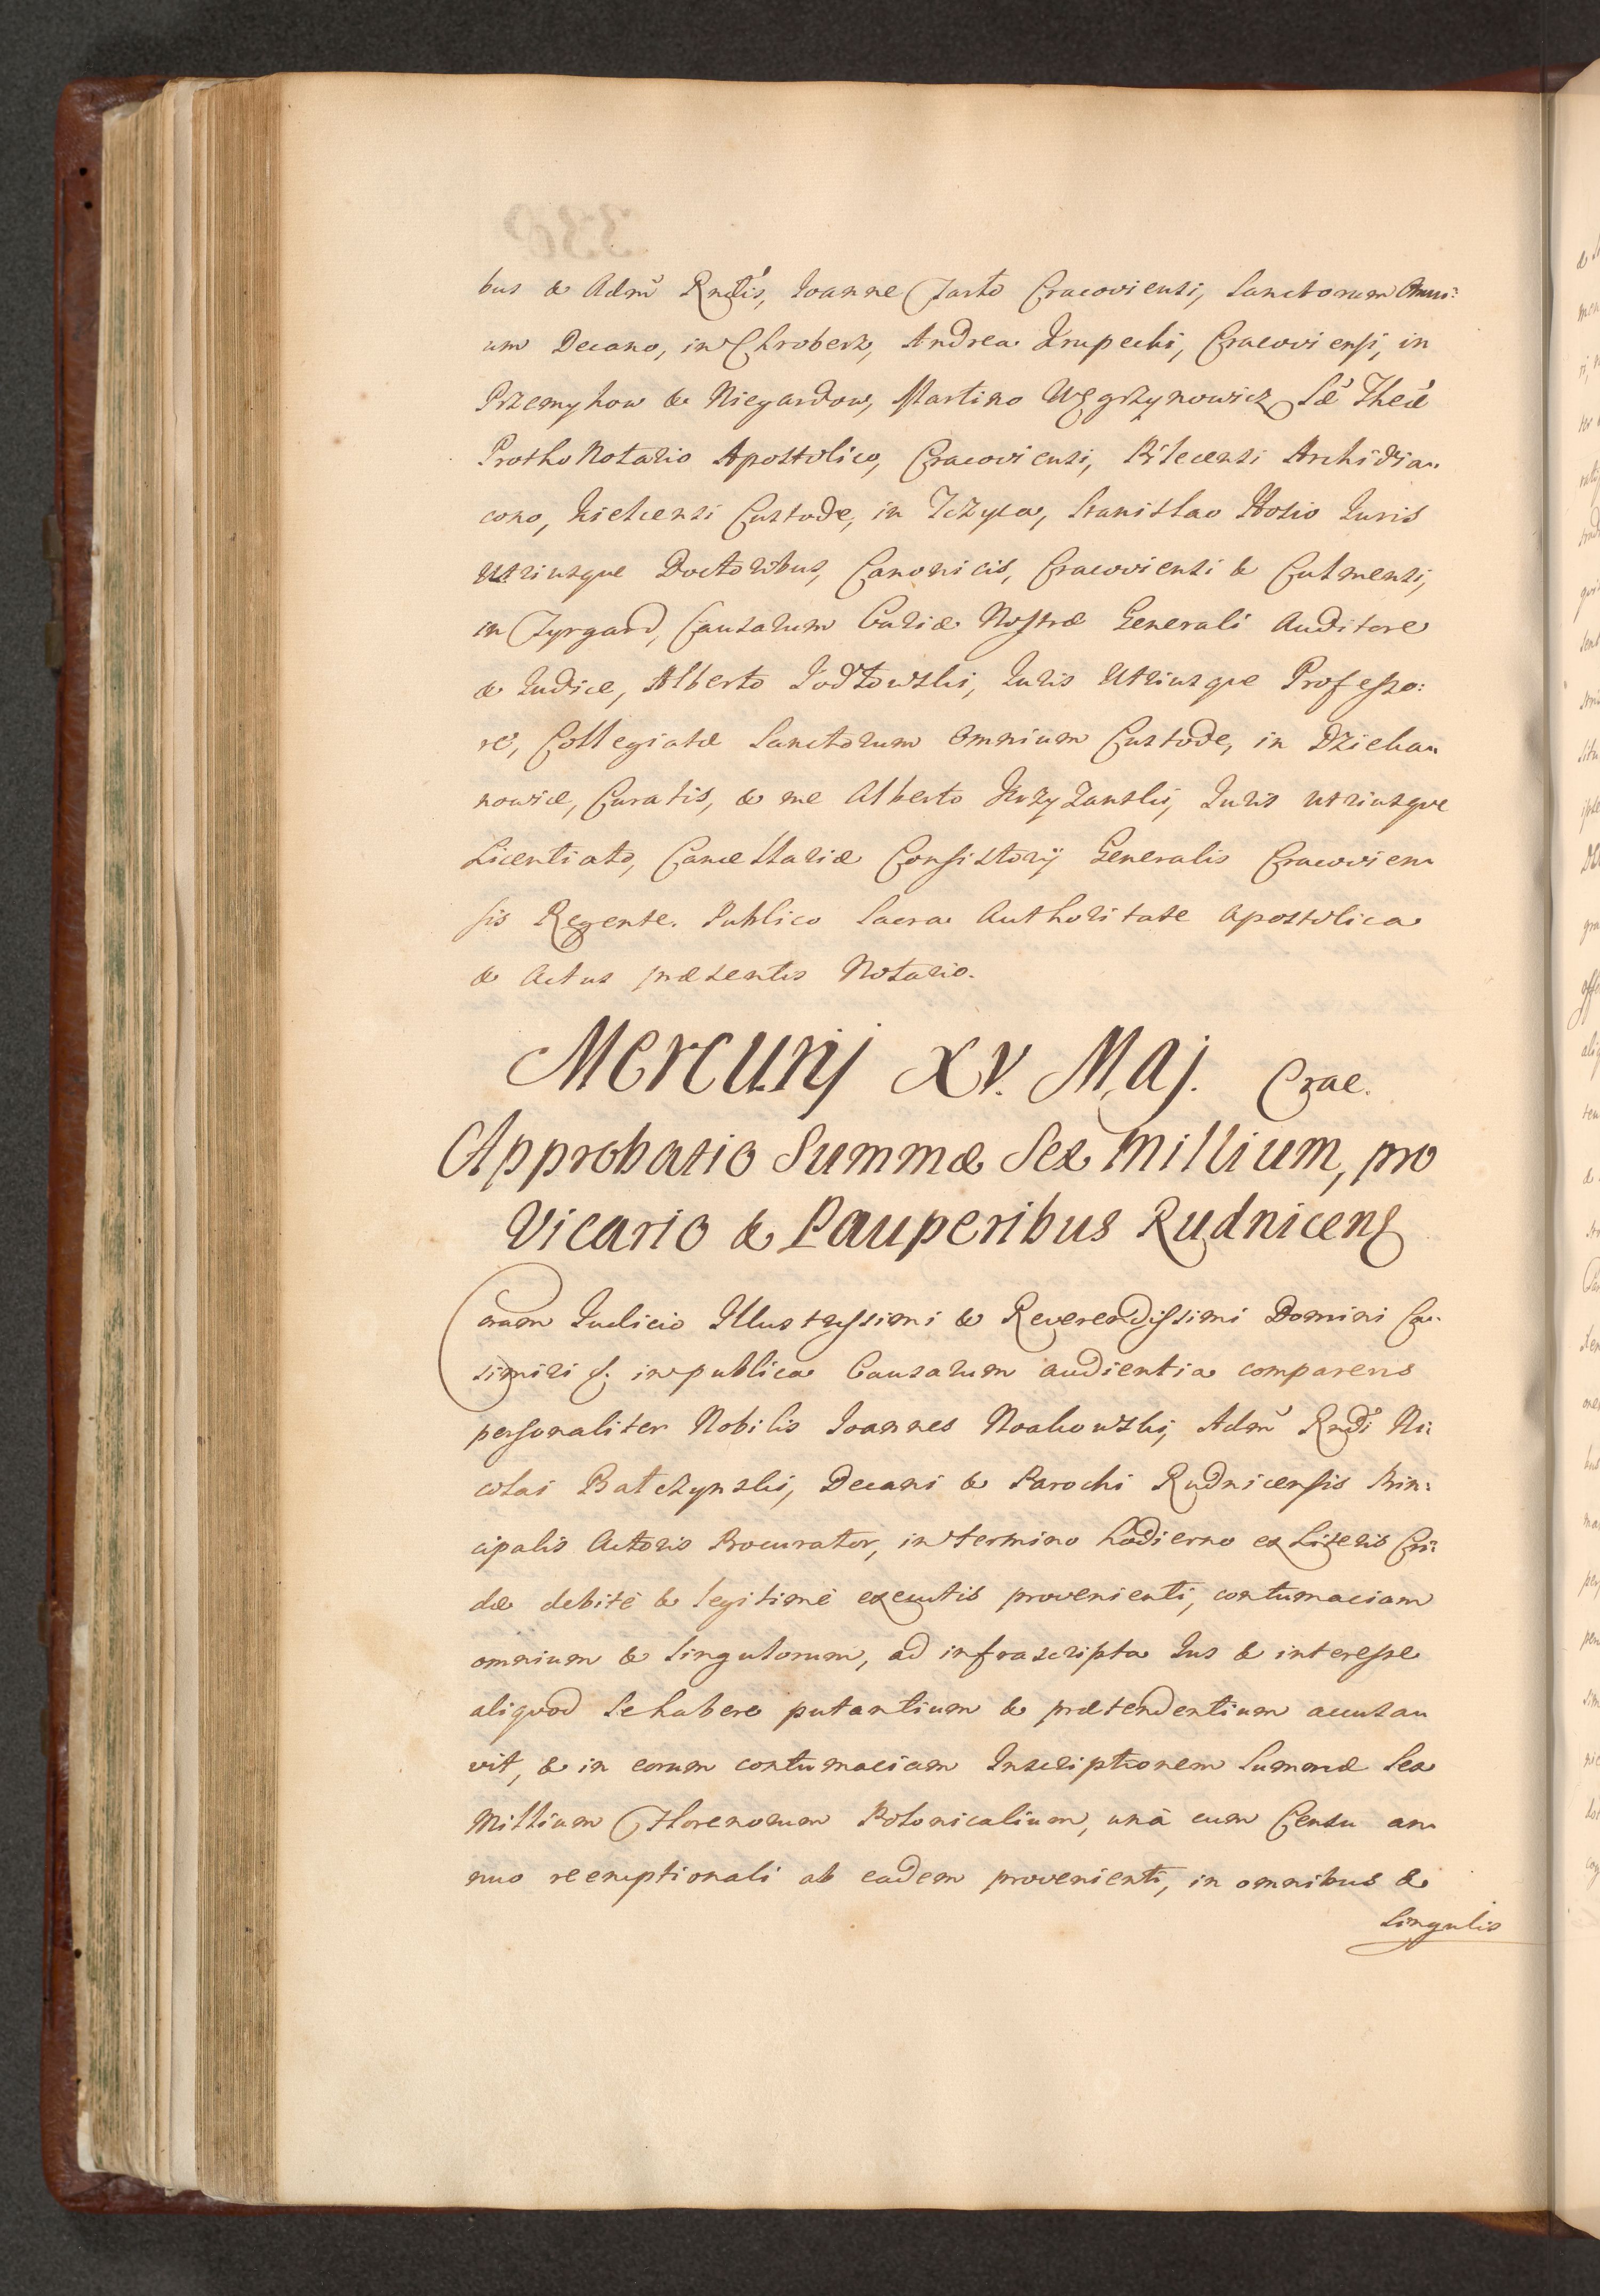 bus & Adm̃ Rndis, Ioanne Tarło Cracoviensi, Sanctorum Omni:
um Decano, in Chroberz, Andrea Krupecki, Cracoviensi, in
Przemykow & Niegardow, Martino Węgrzynowicz Sæ Theæ
ProthoNotario Apostolico, Cracoviensi, Pilecensi Archidia-
cono, Kielcensi Custode, in Tczyca, Stanislao Hosio Iuris
Utriusque Doctoribus, Canonicis, Cracoviensi & Culmensi,
in Zyrgard, Causarum Curiæ Nostræ Generali Auditore
& Iudice, Alberto Jodłowski, Iuris Utriusque Professo:
re, Collegiatæ Sanctorum Omnium Custode, in Dzieka-
nowice, Curatis, & me Alberto Krzyżanski, Iuris utriusque
Licentiato, Cancellariæ Consistorÿ Generalis Cracovien-
sis Regente. Publico Sacra Authoritate Apostolica
& Actus præsentis Notario.
Mercurij XV. Maj. Crac.
Approbatio Summæ Sex Millium, pro
Vicario & Pauperibus Rudnicens
Coram Iudicio Illustrissimi & Reverendissimi Domini Ca-
simiri S. in publica Causarum audientia comparens
personaliter Nobilis Ioannes Noakowski, Adm̃ Rndi Ni:
colai Bałczynski, Decani & Parochi Rudnicensis Prin:
cipalis Actoris Procurator, in termino hodierno ex Literis Cri:
dæ debitè & legitimè executis provenienti, contumaciam
omnium & singulorum, ad infrascripta Ius & interesse
aliquod Se habere putantium & prætendentium accusa-
vit, & in eorum contumaciam Inscriptionem Summæ Sex
Millium Florenorum Polonicalium, unà cum Censu an-
nuo reemptionali ab eadem provenienti, in omnibus &
Singulis